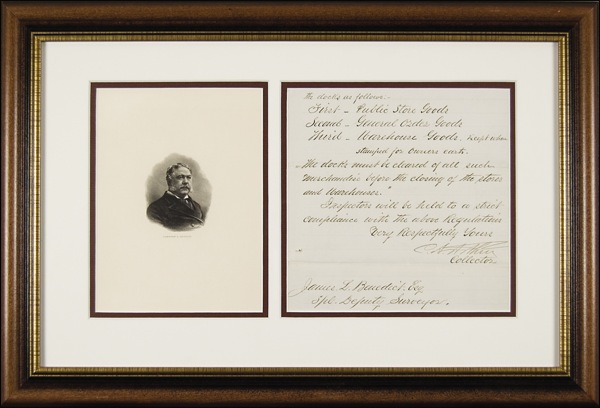 the docks as follows:-
First - Public Store Goods
Second - General Order Goods
Third - Warehouse Goods. Except when
stamped for owners carts.
"The docks must be cleared of all such
merchandise before the closing of the stores
and Warehouses."
Inspectors will be held to a strict
compliance with the above Regulations
Very Respectfully Yours
C. A. Arthur
Collector
James L. Benedict. Esq
Spl. Deputy Surveyor.